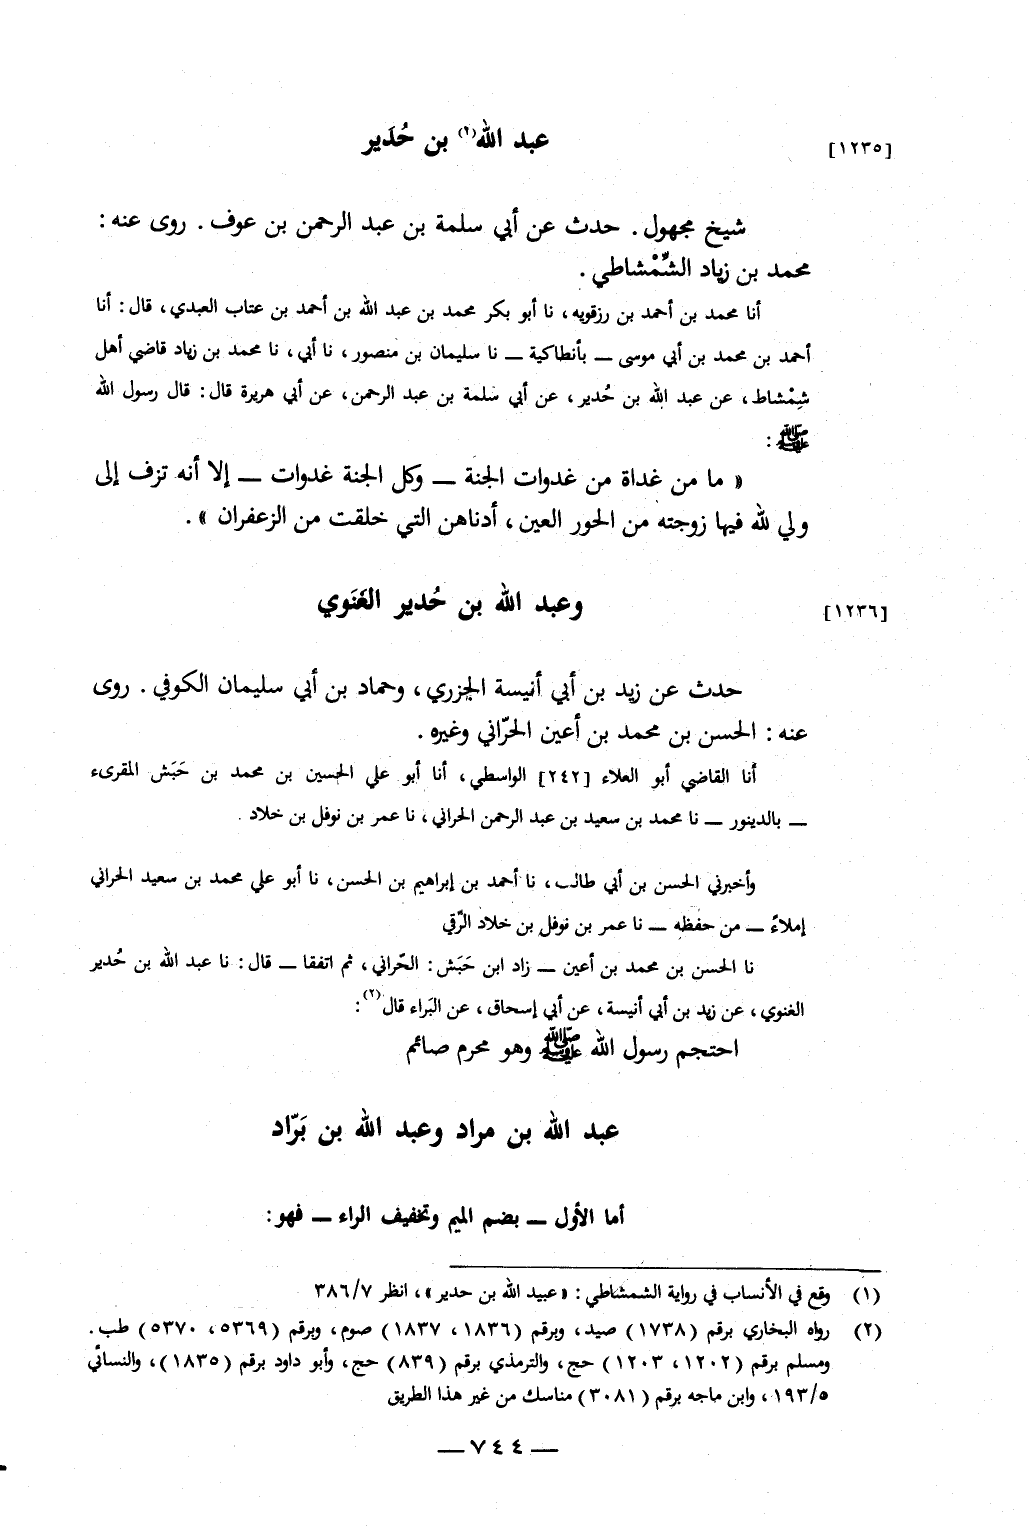 [١٢٣٥] عبد الله(٢) بن حُدَير
شيخ مجهول . حدث عن أبي سلمة بن عبد الرحمن بن عوف . روى عنه :
محمد بن زياد الشِّمْشاطي .
أنا محمد بن أحمد بن رزقويه ، نا أبو بكر محمد بن عبد الله بن أحمد بن عتاب العبدي ، قال : أنا
أحمد بن محمد بن أبي موسى ــ بأنطاكية ــ نا سليمان بن منصور ، نا أبي ، نا محمد بن زياد قاضي أهل
شِمْشاط ، عن عبد الله بن حُدير ، عن أبي سَلمة بن عبد الرحمن ، عن أبي هريرة قال : قال رسول الله
ﷺ :
« ما من غداة من غدوات الجنة ــ وكل الجنة غدوات ــ إلا أنه تزف إلى
ولي لله فيها زوجته من الحور العين ، أدناهن التي خلقت من الزعفران » .
[١٢٣٦] وعبد الله بن حُدير الغَنَوي
حدث عن زيد بن أبي أنيسة الجزري ، وحماد بن أبي سليمان الكوفي . روى
عنه : الحسن بن محمد بن أعين الحرّاني وغيره .
أنا القاضي أبو العلاء [٢٤٢] الواسطي ، أنا أبو علي الحسين بن محمد بن حَبَش المقرىء
ــ بالدينور ــ نا محمد بن سعيد بن عبد الرحمن الحراني ، نا عمر بن نوفل بن خلاد .
وأخبرني الحسن بن أبي طالب ، نا أحمد بن إبراهيم بن الحسن ، نا أبو علي محمد بن سعيد الحراني
إملاءً ــ من حفظه ــ نا عمر بن نوفل بن خلاد الرّقي
نا الحسن بن محمد بن أعين ــ زاد ابن حَبَش : الحّراني ، ثم اتفقا ــ قال : نا عبد الله بن حُدير
الغنوي ، عن زيد بن أبي أنيسة ، عن أبي إسحاق ، عن البَراء قال(٢) :
احتجم رسول الله ﷺ وهو محرم صائم
عبد الله بن مراد وعبد الله بن بَرّاد
أما الأول ــ بضم الميم وتخفيف الراء ــ فهو :
(١) وقع في الأنساب في رواية الشمشاطي : « عبيد الله بن حدير » ، انظر ٣٨٦/٧
(٢) رواه البخاري برقم (١٧٣٨) صيد ، وبرقم (١٨٣٦ ، ١٨٣٧) صوم ، وبرقم (٥٣٦٩ ، ٥٣٧٠) طب .
ومسلم برقم (١٢٠٢ ، ١٢٠٣) حج ، والترمذي برقم (٨٣٩) حج ، وأبو داود برقم (١٨٣٥) ، والنسائي
١٩٣/٥ ، وابن ماجه برقم (٣٠٨١) مناسك من غير هذا الطريق
ــ ٧٤٤ ــ